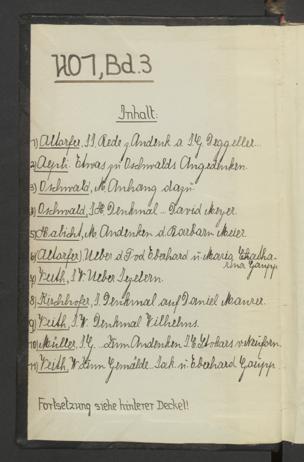 1107, Bd. 3
Inhalt:
1) Altorfer, J.J. Rede z. Andenk. a. J.G. Deggeller...
2) Ayrli. Etwas zu Oschwalds Angedenken.
3) Oschwald, M. Anhang dazu
4) Oschwald, J.H. Denkmal – David Meyer.
5) Habicht, M. Andenken d. Barbara Meier.
6) Altorfer, Ueber d. Tod Eberhard u. Maria Catha-
rina Gaupp
7) Veith, J.W. Ueber Jezlern.
8) Kirchhofer, J. Denkmal auf Daniel Maurer.
9) Veith, J.W. Denkmal Wilhelms.
10) Müller, J.G. – Zum Andenken J.G. Stokars v. Neuforn.
11) Veith, W. Zum Gemälde Jak. u. Eberhard Gaupp
Fortsetzung siehe hinterer Deckel!